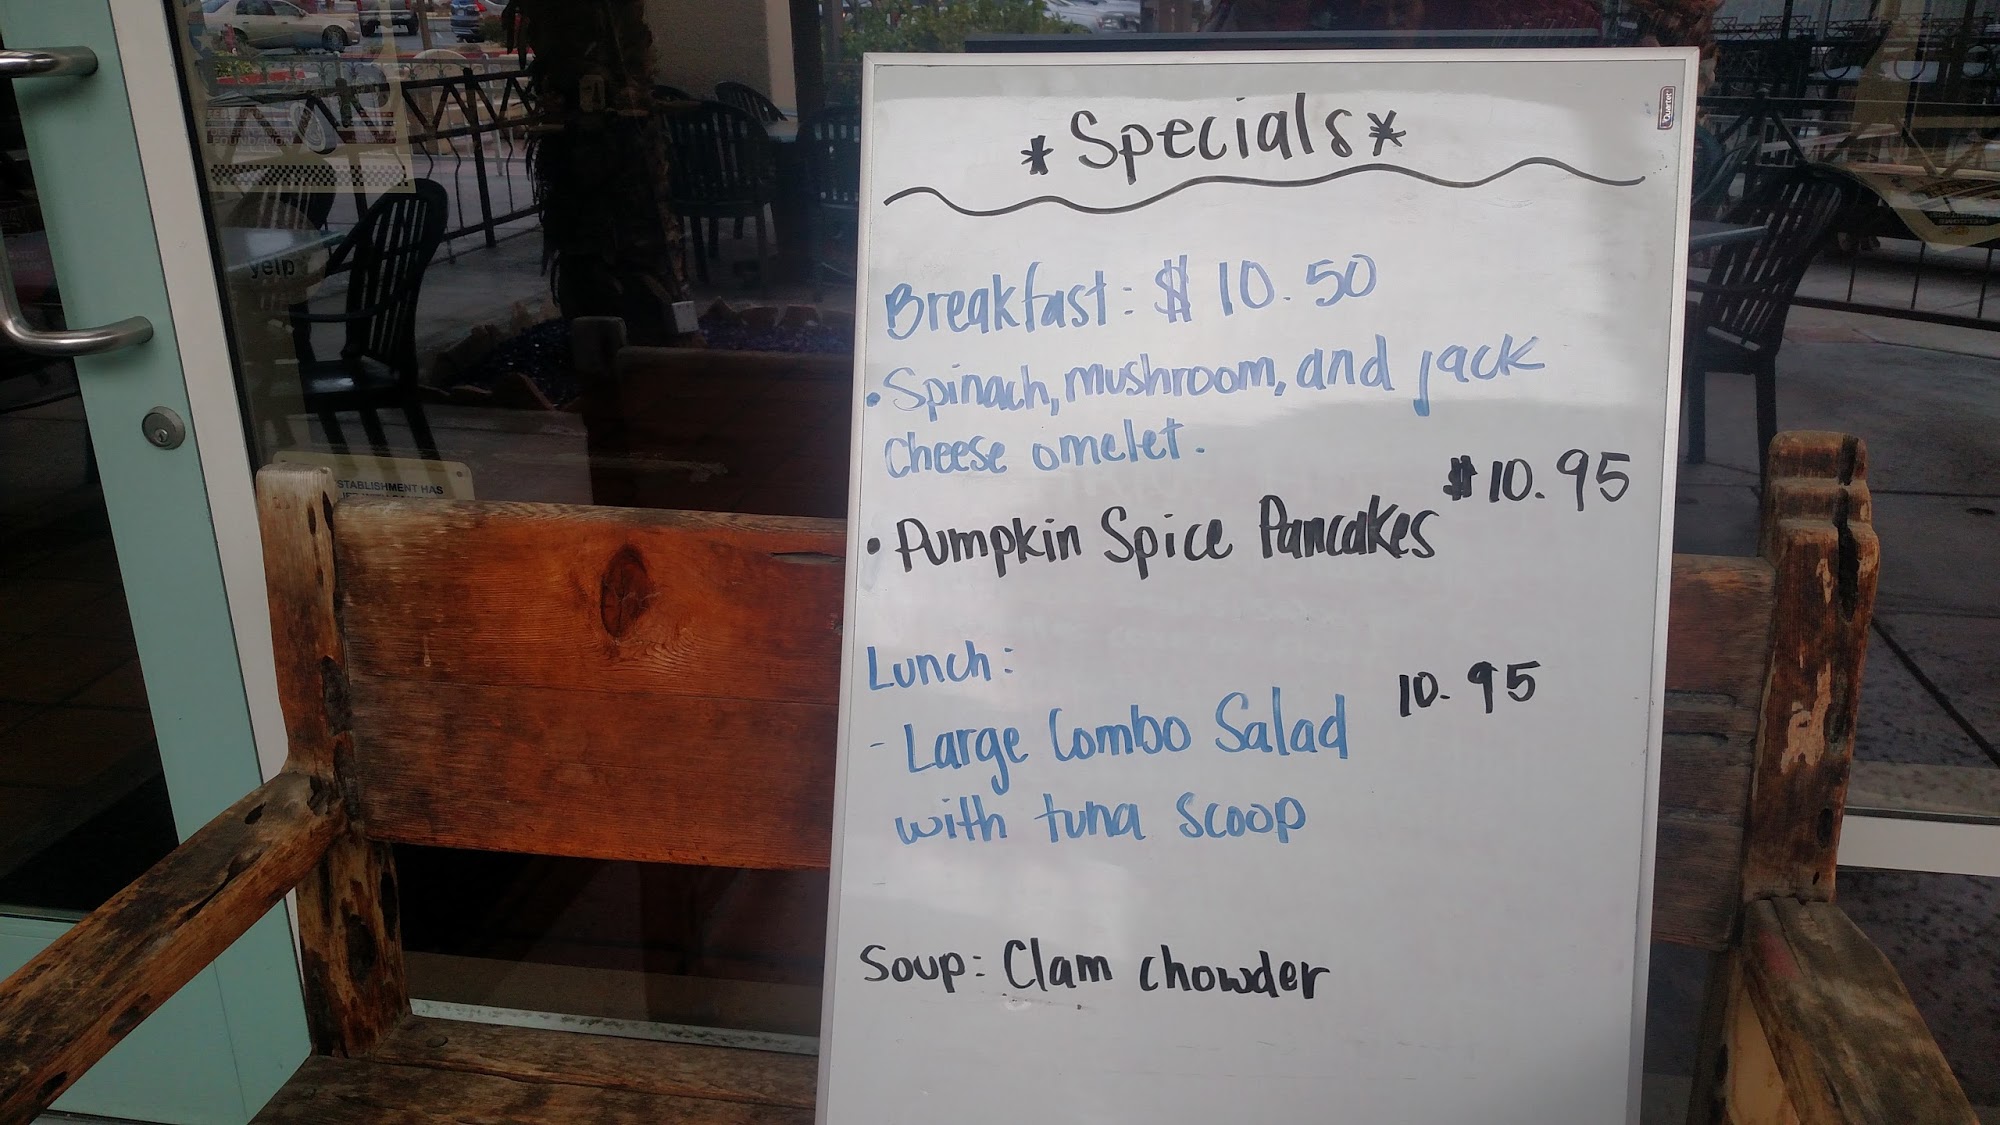 *Specials*
Breakfast: $10.50
• Spinach, mushroom, and jack
cheese omelet.
• Pumpkin Spice Pancakes $10.95
Lunch:
- Large Combo Salad 10.95
with tuna scoop
Soup: Clam chowder
Quartet
yelp
STABLISHMENT HAS